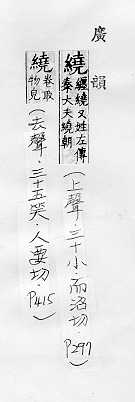 廣韻
繞 纏繞又姓左傳
秦大夫繞朝
(上聲·三十小·而沼切·P297)
繞 卷取
物皃
(去聲·三十五笑·人要切·P415)